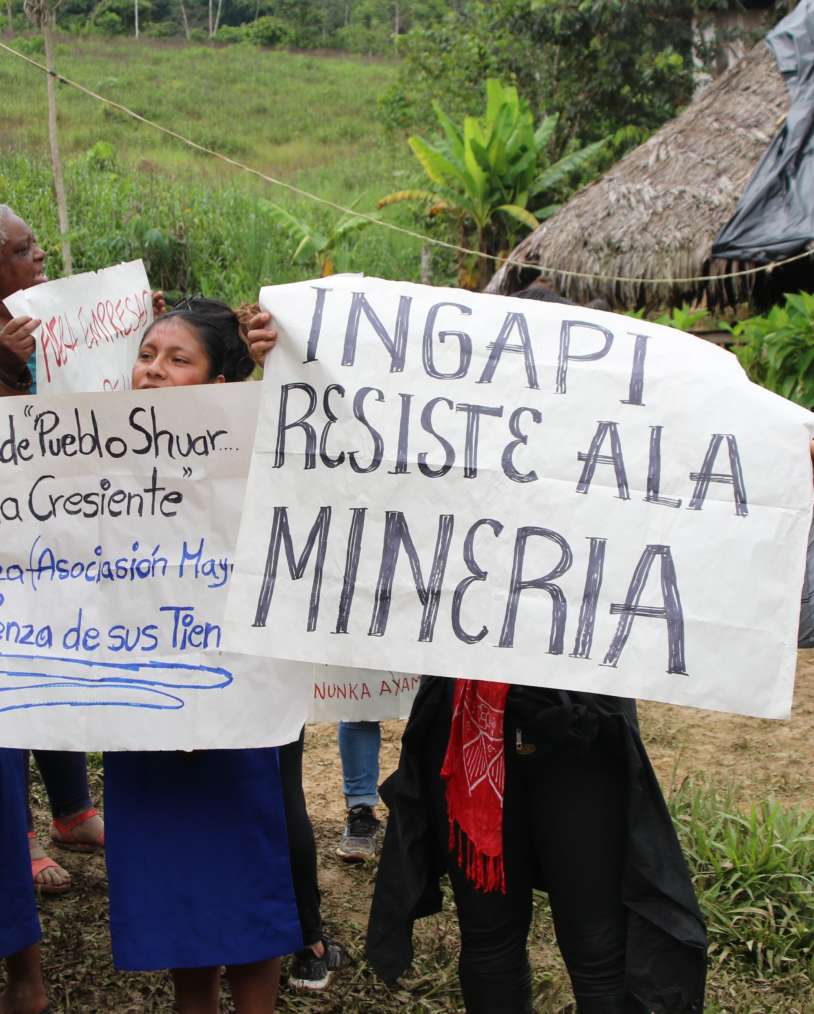 FUERA EMPRESAS
de "Pueblo Shuar...
a Cresiente"
za (Asociasión May
enza de sus Tier
INGAPI
RESISTE ALA
MINERIA
NUNKA AYAM